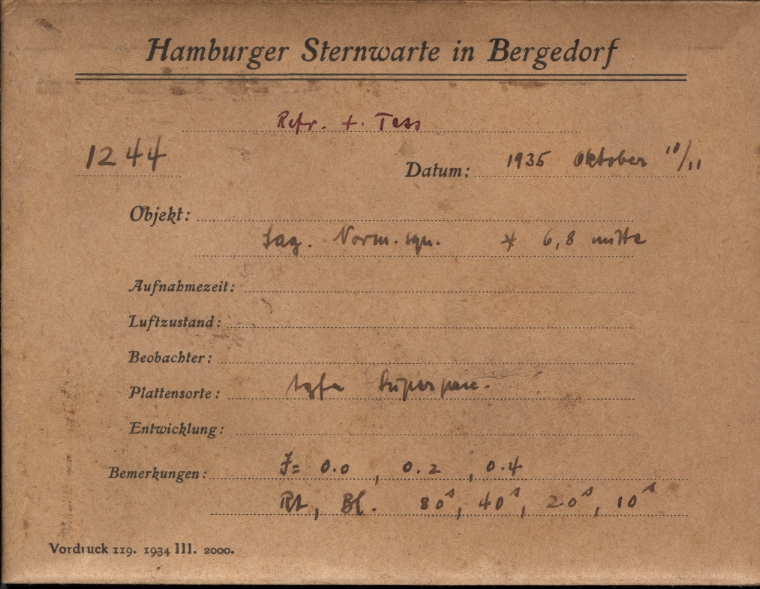 Hamburger Sternwarte in Bergedorf
Refr. + Tess
1244 Datum: 1935 Oktober 10/11
Objekt:
Sag. Norm. sqn. * 6,8 mitte
Aufnahmezeit:
Luftzustand:
Beobachter:
Plattensorte: Agfa Superpan.
Entwicklung:
Bemerkungen: F= 0.0, 0.2, 0.4
Rt, Bl. 80ˢ, 40ˢ, 20ˢ, 10ˢ
Vordruck 119. 1934 III. 2000.